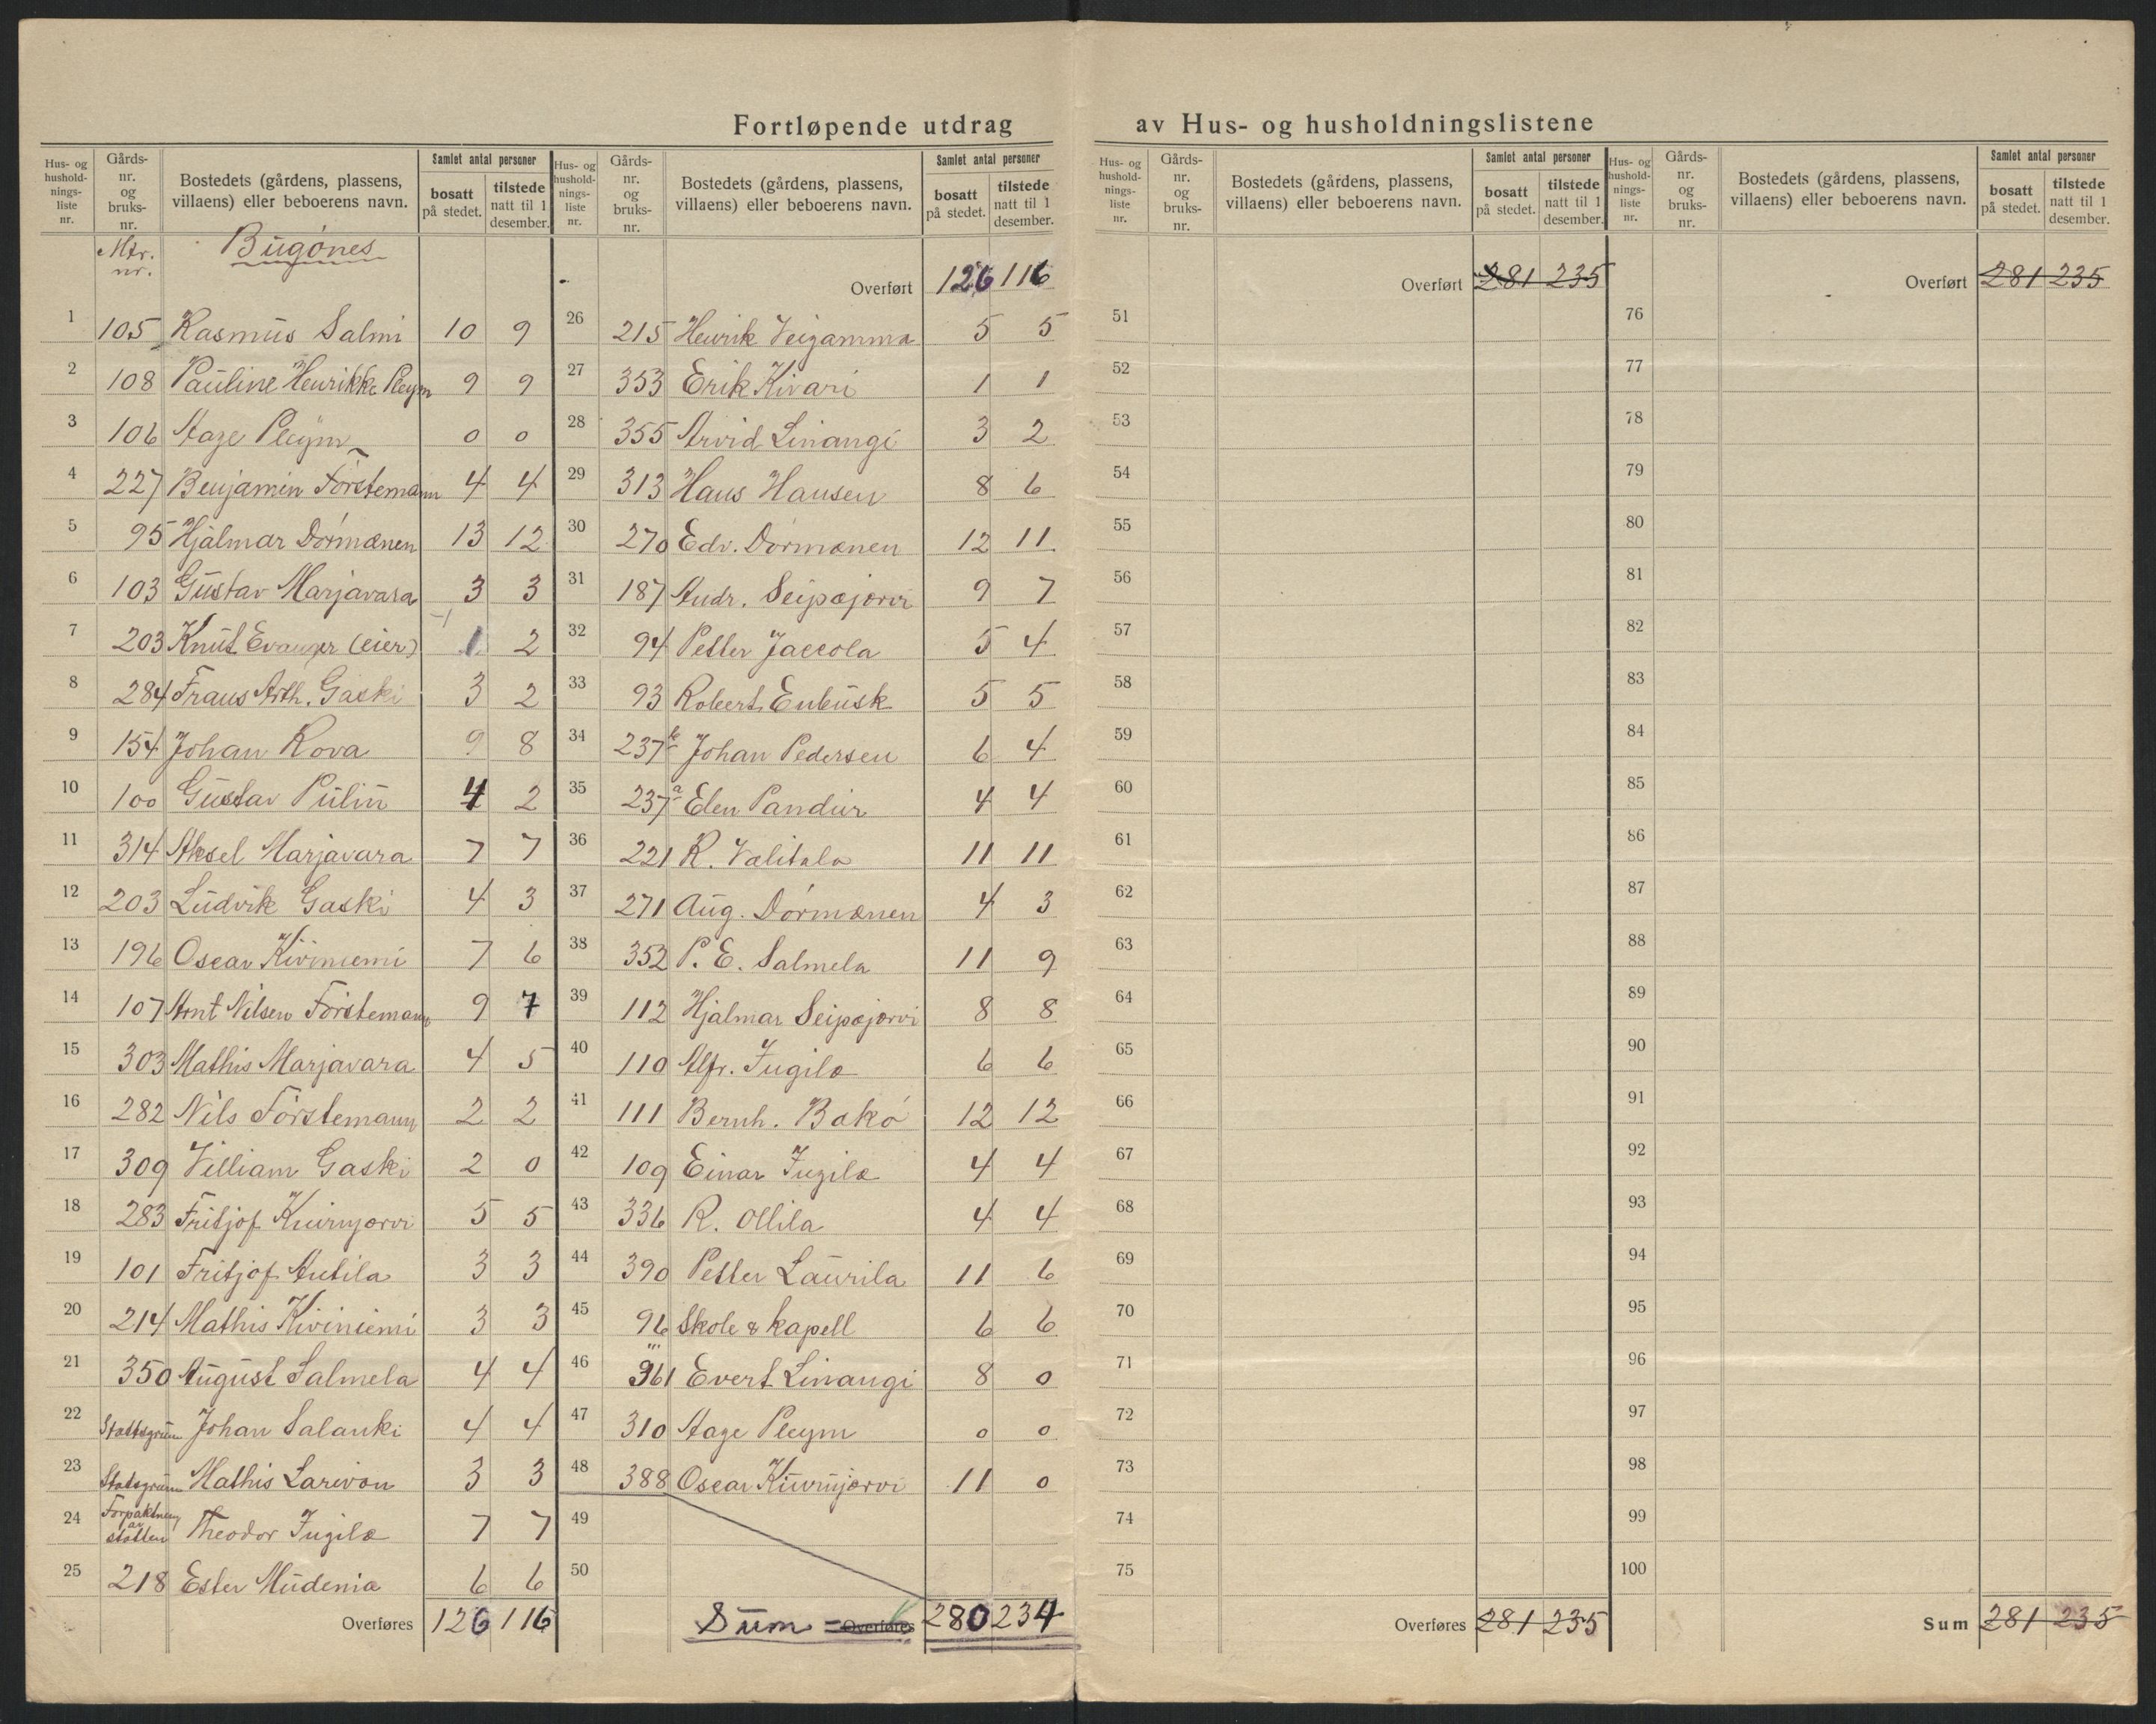 Fortløpende utdrag av Hus- og husholdningslistene
Hus- og husholdnings- liste nr. Gårds- nr. og bruks- nr. Bostedets (gårdens, plassens, villaens) eller beboerens navn. Samlet antal personer bosatt på stedet. tilstede natt til 1 desember.
Mtr. nr. Bugönes
1 105 Rasmus Salmi 10 9
2 108 Pauline Henrikke Pleym 9 9
3 106 Aage Pleym 0 0
4 227 Benjamin Förstemann 4 4
5 95 Hjalmar Dörmænen 13 12
6 103 Gustav Marjavara 3 3
-1
7 203 Knut Evanger (eier) 1 2
8 284 Frans Arth. Gaski 3 2
9 154 Johan Rova 9 8
10 100 Gustav Pulin 4 2
11 314 Aksel Marjavara 7 7
12 203 Ludvik Gaski 4 3
13 196 Oscar Kiviniemi 7 6
14 107 Arnt Nilsen Förstemann 9 7
15 303 Mathis Marjavara 4 5
16 282 Nils Förstemann 2 2
17 309 Villiam Gaski 2 0
18 283 Fritjof 5 5
19 101 Fritjof Antila 3 3
20 214 Mathis Kiviniemi 3 3
21 350 August Salmela 4 4
22 Statsgrunn Johan Salanki 4 4
23 Statsgrunn Mathis Larivon 3 3
24 av staten Theodor Jugilæ 7 7
25 218 Ester Mudenia 6 6
Overføres 126 116
Hus- og hushold- nings- liste nr. Gårds- nr. og bruks- nr. Bostedets (gårdens, plassens, villaens) eller beboerens navn. Samlet antal personer bosatt på stedet. tilstede natt til 1 desember.
Overført 126 116
26 215 Henrik Veigamma 5 5
27 353 Erik Kivari 1 1
28 355 Arvid Linangi 3 2
29 313 Hans Hansen 8 6
30 270 Edv. Dörmænen 12 11
31 187 Andr. Seipæjærvi 9 7
32 94 Petter Jaccola 5 4
33 93 Robert Enbusk 5 5
34 237 b Johan Pedersen 6 4
35 237 a Elen Pandur 4 4
36 221 R. Valitalo 11 11
37 271 Aug. Dörmænen 4 3
38 352 P. E. Salmela 11 9
39 112 Hjalmar Seipæjærvi 8 8
40 110 Alfr. Jugilæ 6 6
41 111 Bernh. Bakö 12 12
42 109 Einar Jugilæ 4 4
43 336 R. Ollila 4 4
44 390 Petter Laurila 11 6
45 96 Skole & kapell 6 6
46 361 Evert Linangi 8 0
47 310 Aage Pleym 0 0
48 388 Oscar 11 0
49
50
Sum = Overføres 280 234
Hus- og hushold- nings- liste nr. Gårds- nr. og bruks- nr. Bostedets (gårdens, plassens, villaens) eller beboerens navn. Samlet antal personer bosatt på stedet. tilstede natt til 1 desember.
Overført 281 235
51
52
53
54
55
56
57
58
59
60
61
62
63
64
65
66
67
68
69
70
71
72
73
74
75
Overføres 281 235
Hus- og hushold- nings- liste nr. Gårds- nr. og bruks- nr. Bostedets (gårdens, plassens, villaens) eller beboerens navn. Samlet antal personer bosatt på stedet. tilstede natt til 1 desember.
Overført 281 235
76
77
78
79
80
81
82
83
84
85
86
87
88
89
90
91
92
93
94
95
96
97
98
99
100
Sum 281 235